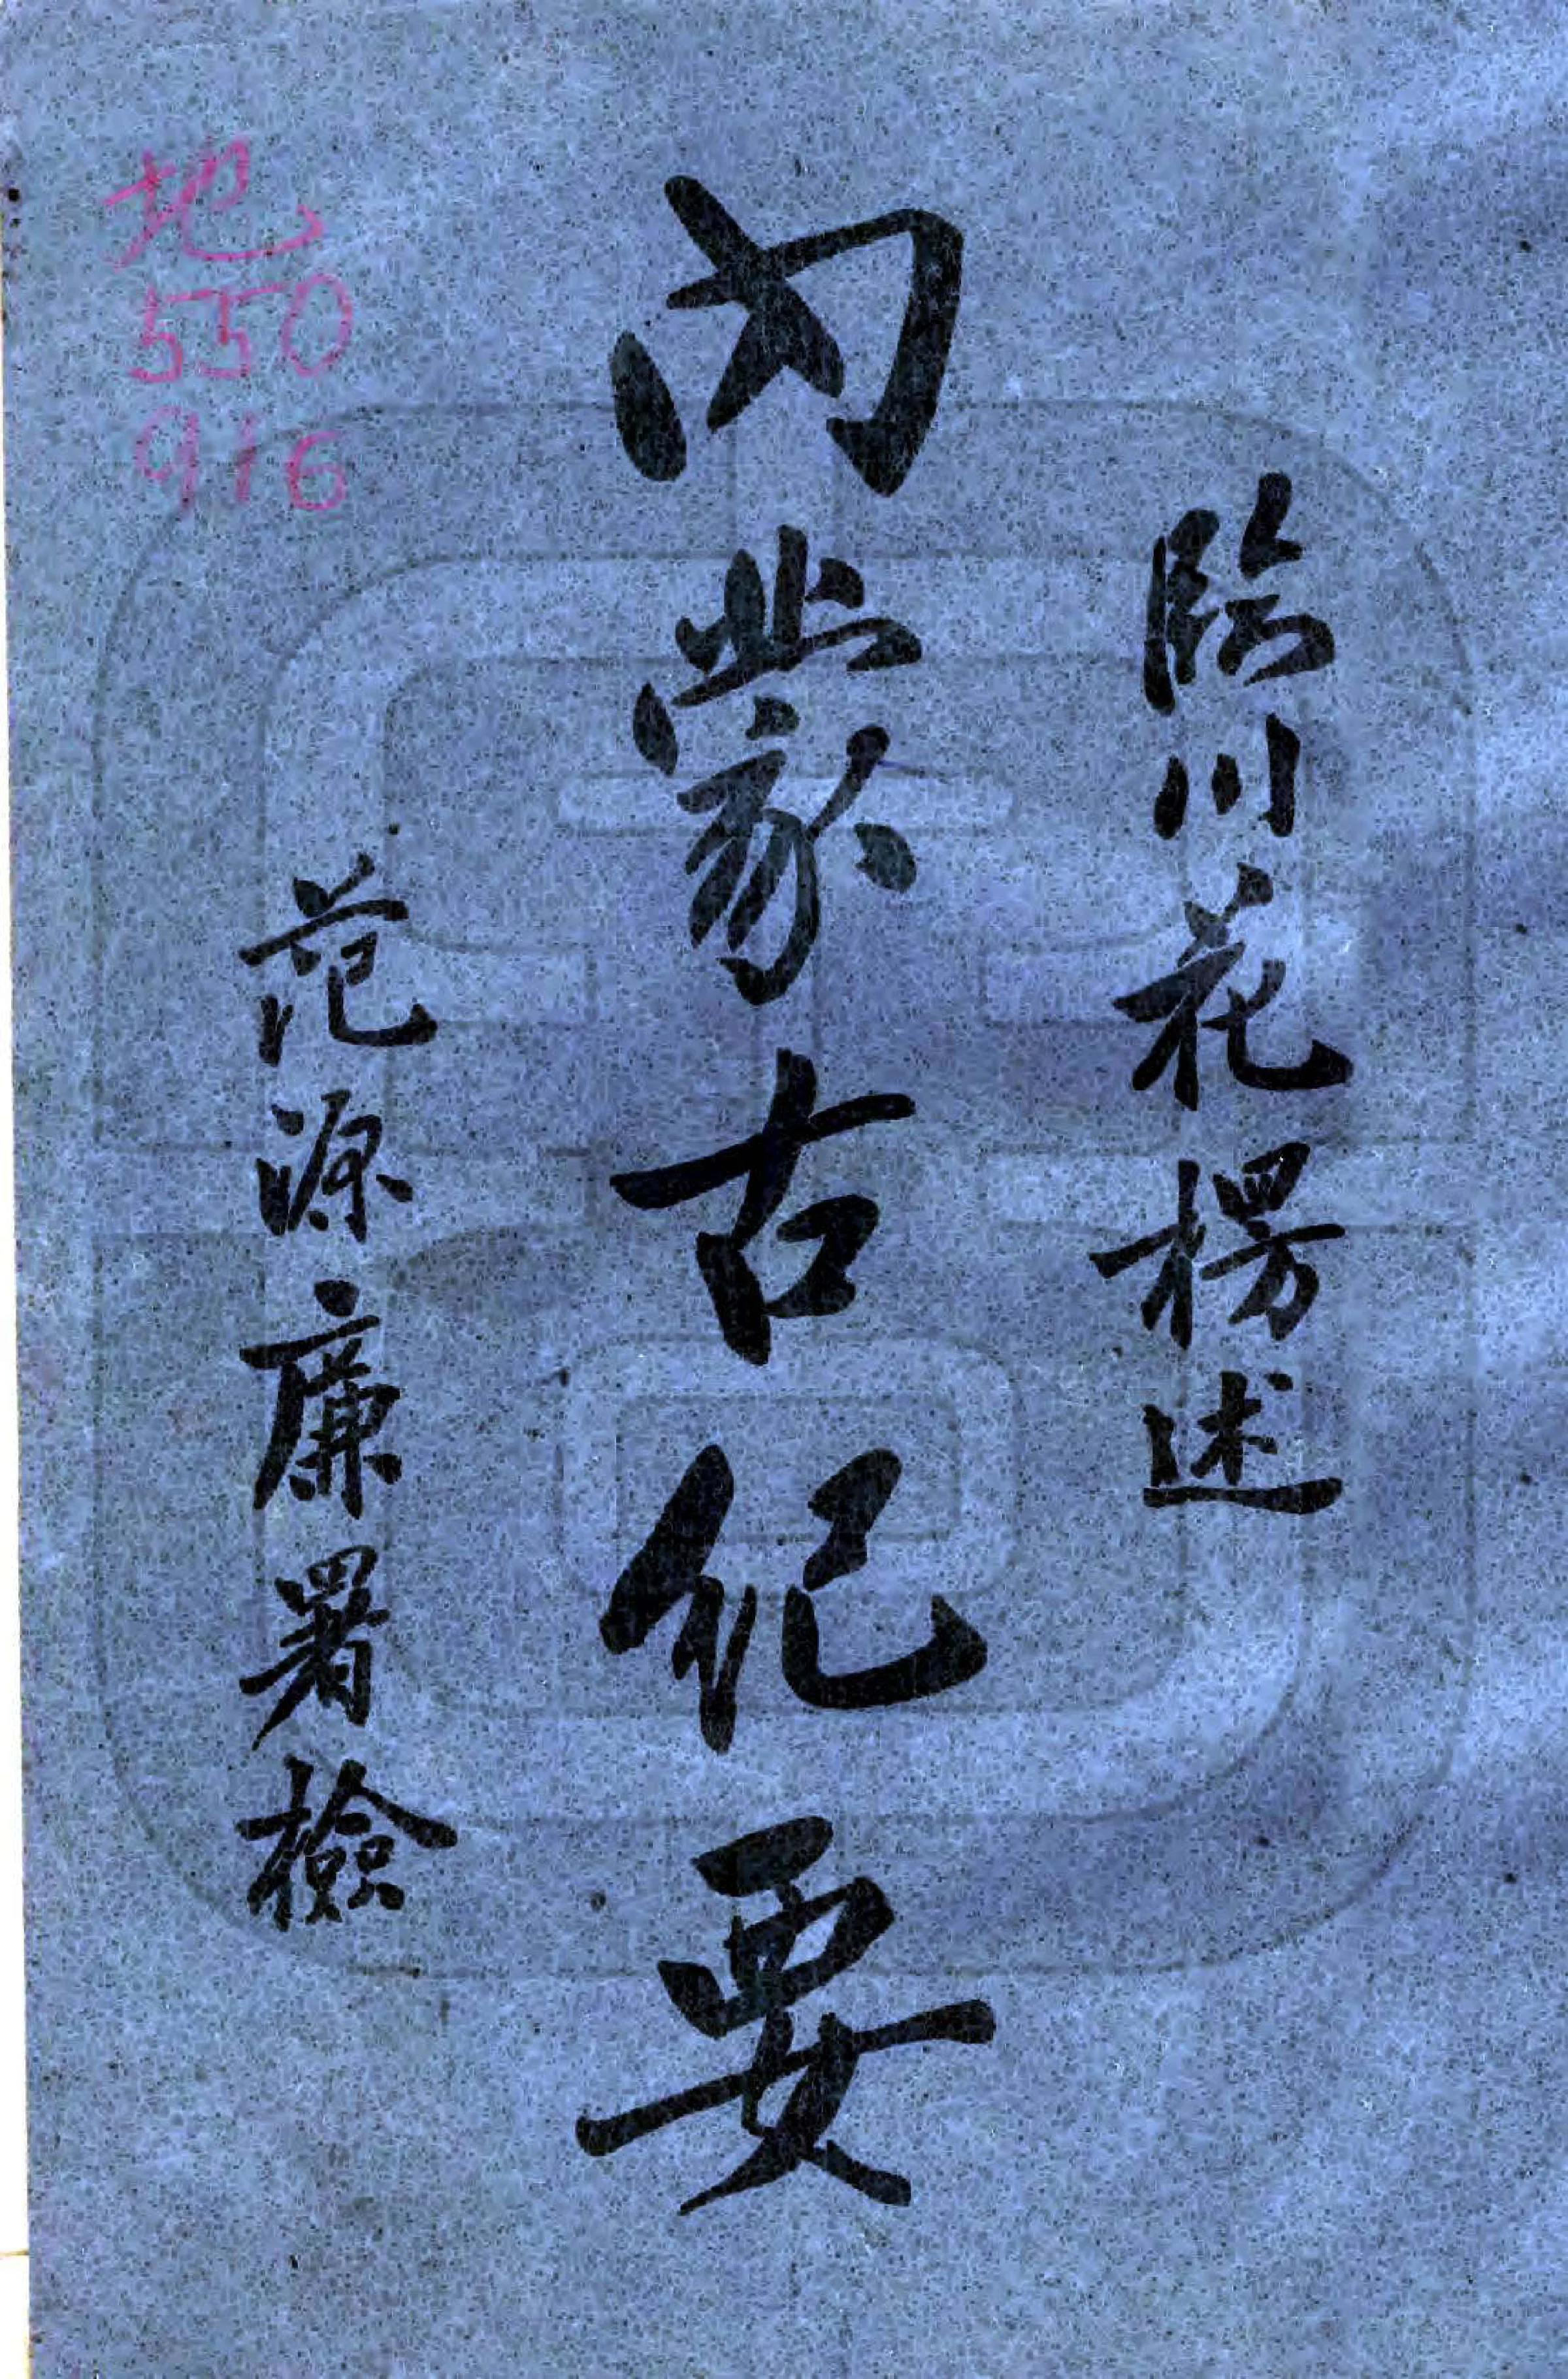 臨川花楞述
內蒙古紀要
范源廉署檢
地
550
916